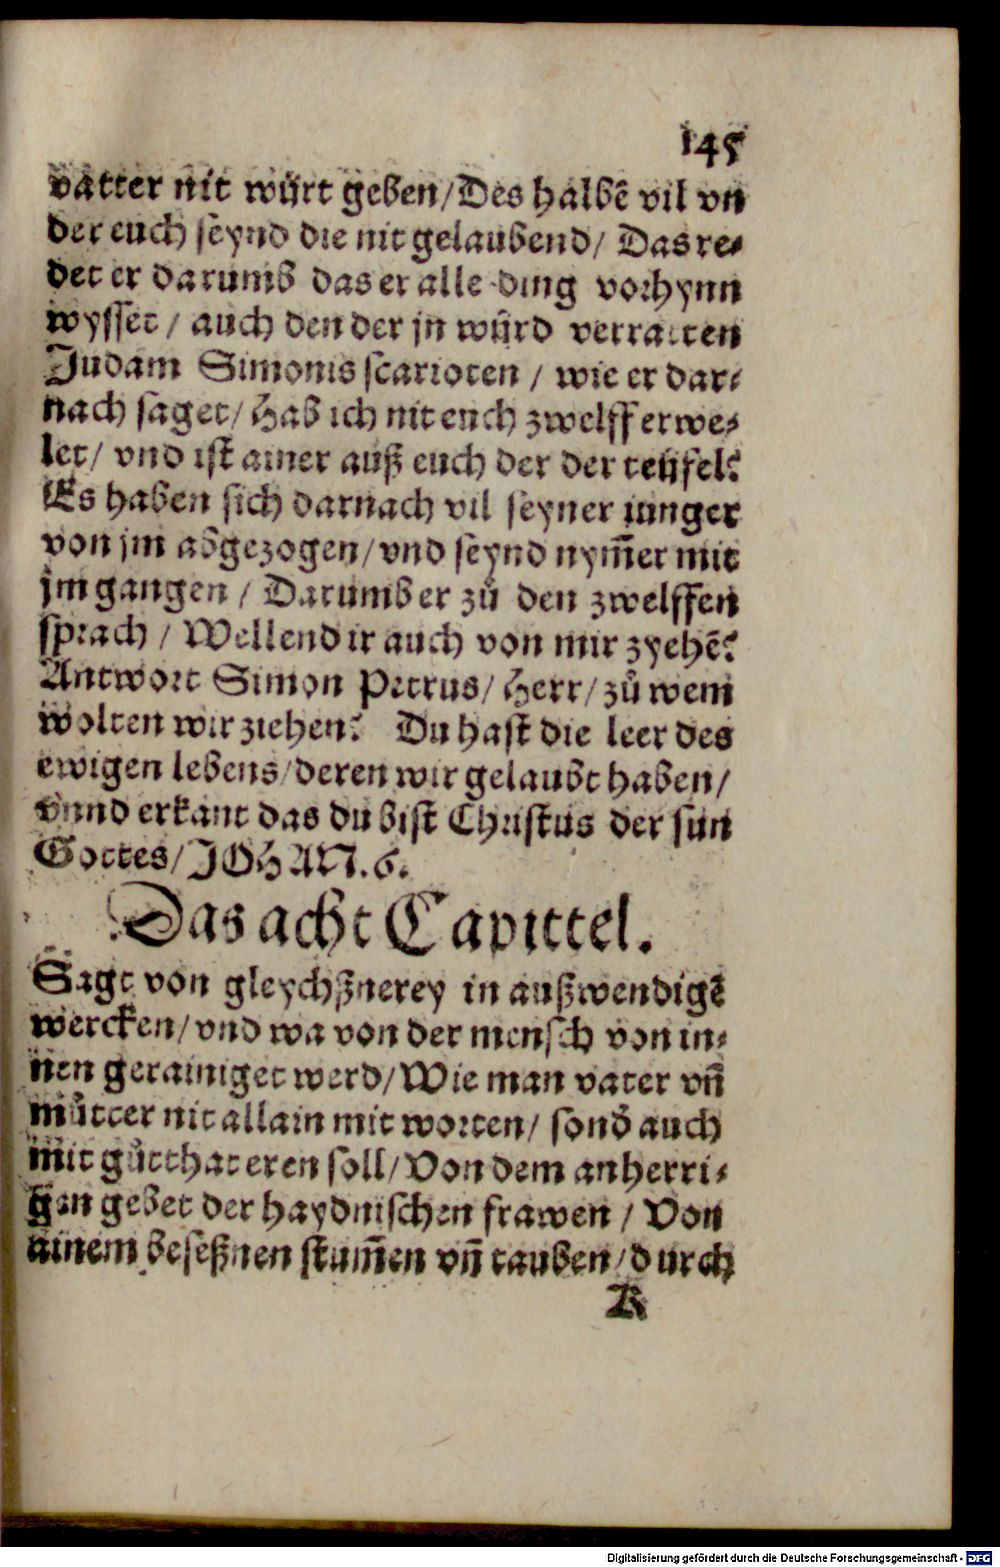 145
vatter nit würt geben/ Des halbē vil vn
der euch seynd die nit gelaubend/ Das re⸗
det er darumb das er alle ding vorhynn
wysset / auch den der jn wůrd verratten
Judam Simonis scarioten / wie er dar⸗
nach saget/ Hab ich nit euch zwelff erwe⸗
let/ vnd ist ainer auß euch der der teüfel?
Es haben sich darnach vil seyner iunger
von jm abgezogen/ vnd seynd nym̄er mit
jm gangen / Darumb er zů den zwelffen
sprach / Wellend ir auch von mir zyehē?
Antwort Simon Petrus/ Herr/ zů wem
wolten wir ziehen? Du hast die leer des
ewigen lebens/ deren wir gelaubt haben/
vnnd erkant das du bist Christus der sun
Gottes/ JOHAN. 6.
Das acht Capittel.
Sagt von gleychßnerey in außwendigē
wercken/ vnd wa von der mensch von in⸗
nen gerainiget werd/ Wie man vater vn̄
můtter nit allain mit worten/ sonď auch
mit gůtthat eren soll/ Von dem anherri⸗
gen gebet der haydnischen frawen / Von
ainem beseßnen stum̄en vn̄ tauben/ durch
K
Digitalisierung gefördert durch die Deutsche Forschungsgemeinschaft - DFG